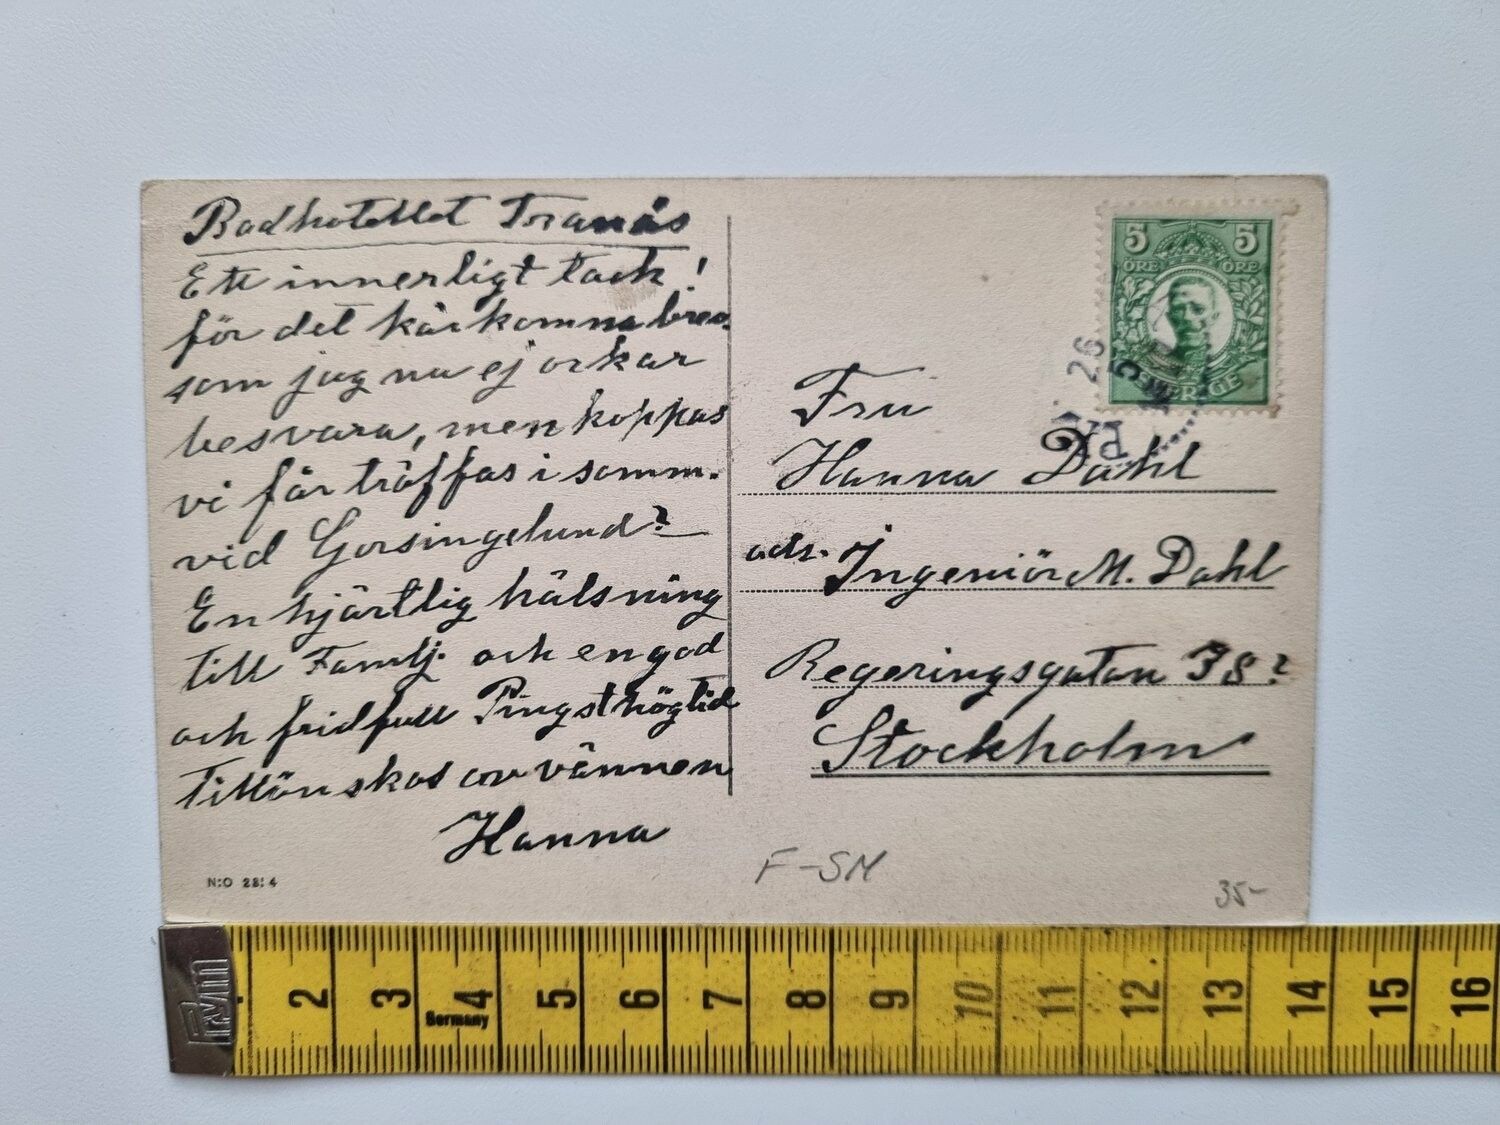 Badhotellet Tranås
Ett innerligt tack!
för det kärkomna brev.
som jag nu ej orkar
besvara, men hoppas
vi får träffas i somm.
vid Gorsingelund?
En hjärtlig hälsning
till Familj. och en god
och fridfull Pingsthögtid
tillönskas av vännen
Hanna
N:O 22:4
5 5
ÖRE ÖRE
SVERIGE
26
5
Fru
Hanna Dahl
adr. Ingeniör M. Dahl
Regeringsgatan 38?
Stockholm
F-SM
35-
2 3 4 5 6 7 8 9 10 11 12 13 14 15 16
Germany
Prym